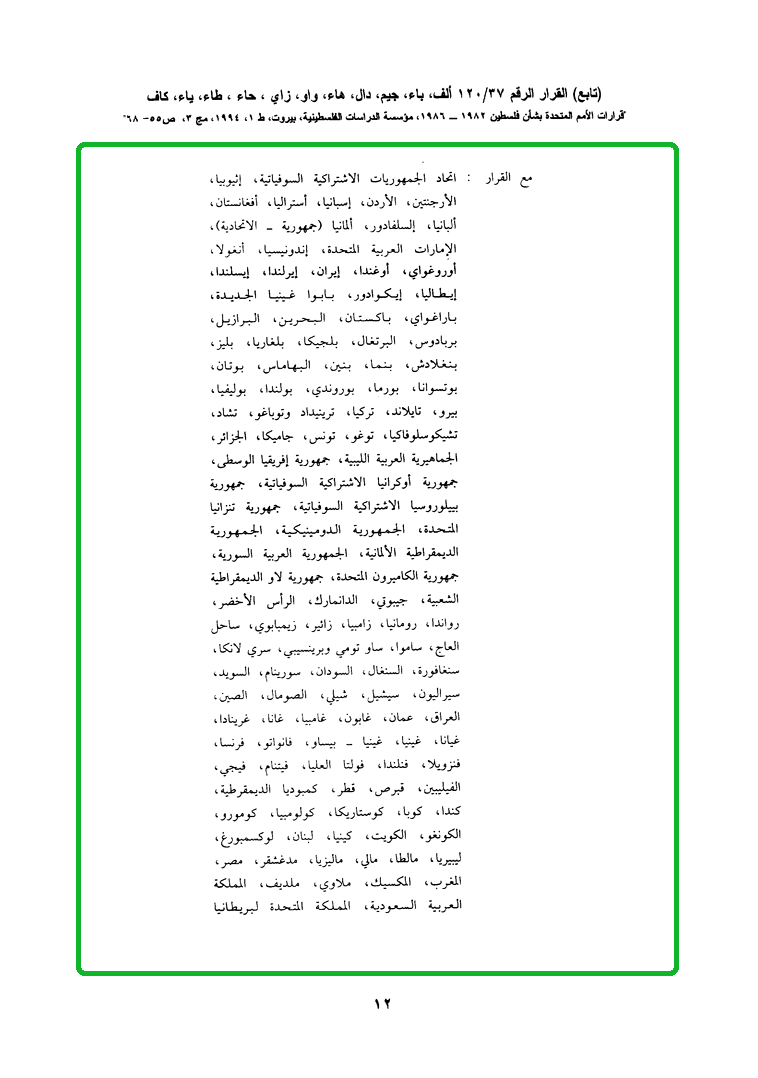 (تابع) القرار الرقم ١٢٠/٣٧ ألف، باء، جيم، دال، هاء، واو، زاي ، حاء ، طاء، ياء، كاف
"قرارات الأمم المتحدة بشأن فلسطين ١٩٨٢ – ١٩٨٦، مؤسسة الدراسات الفلسطينية، بيروت، ط ١، ١٩٩٤، مج ٣، ص٥٥- ٦٨"
مع القرار : اتحاد الجمهوريات الاشتراكية السوفياتية، إثيوبيا،
الأرجنتين، الأردن، إسبانيا، أستراليا، أفغانستان،
ألبانيا، إلسلفادور، ألمانيا (جمهورية – الاتحادية)،
الإمارات العربية المتحدة، إندونيسيا، أنغولا،
أوروغواي، أوغندا، إيران، إيرلندا، إيسلندا،
إيطاليا، إيكوادور، بابوا غينيا الجديدة،
باراغواي، باكستان، البحرين، البرازيل،
بربادوس، البرتغال، بلجيكا، بلغاريا، بليز،
بنغلادش، بنما، بنين، البهاماس، بوتان،
بوتسوانا، بورما، بوروندي، بولندا، بوليفيا،
بيرو، تايلاند، تركيا، ترينيداد وتوباغو، تشاد،
تشيكوسلوفاكيا، توغو، تونس، جاميكا، الجزائر،
الجماهيرية العربية الليبية، جمهورية إفريقيا الوسطى،
جمهورية أوكرانيا الاشتراكية السوفياتية، جمهورية
بييلوروسيا الاشتراكية السوفياتية، جمهورية تنزانيا
المتحدة، الجمهورية الدومينيكية، الجمهورية
الديمقراطية الألمانية، الجمهورية العربية السورية،
جمهورية الكاميرون المتحدة، جمهورية لاو الديمقراطية
الشعبية، جيبوتي، الدانمارك، الرأس الأخضر،
رواندا، رومانيا، زامبيا، زائير، زيمبابوي، ساحل
العاج، ساموا، ساو تومي وبرينسيبي، سري لانكا،
سنغافورة، السنغال، السودان، سورينام، السويد،
سيراليون، سيشيل، شيلي، الصومال، الصين،
العراق، عمان، غابون، غامبيا، غانا، غرينادا،
غيانا، غينيا، غينيا – بيساو، فانواتو، فرنسا،
فنزويلا، فنلندا، فولتا العليا، فيتنام، فيجي،
الفيليبين، قبرص، قطر، كمبوديا الديمقرطية،
كندا، كوبا، كوستاريكا، كولومبيا، كومورو،
الكونغو، الكويت، كينيا، لبنان، لوكسمبورغ،
ليبيريا، مالطا، مالي، ماليزيا، مدغشقر، مصر،
المغرب، المكسيك، ملاوي، ملديف، المملكة
العربية السعودية، المملكة المتحدة لبريطانيا
١٢